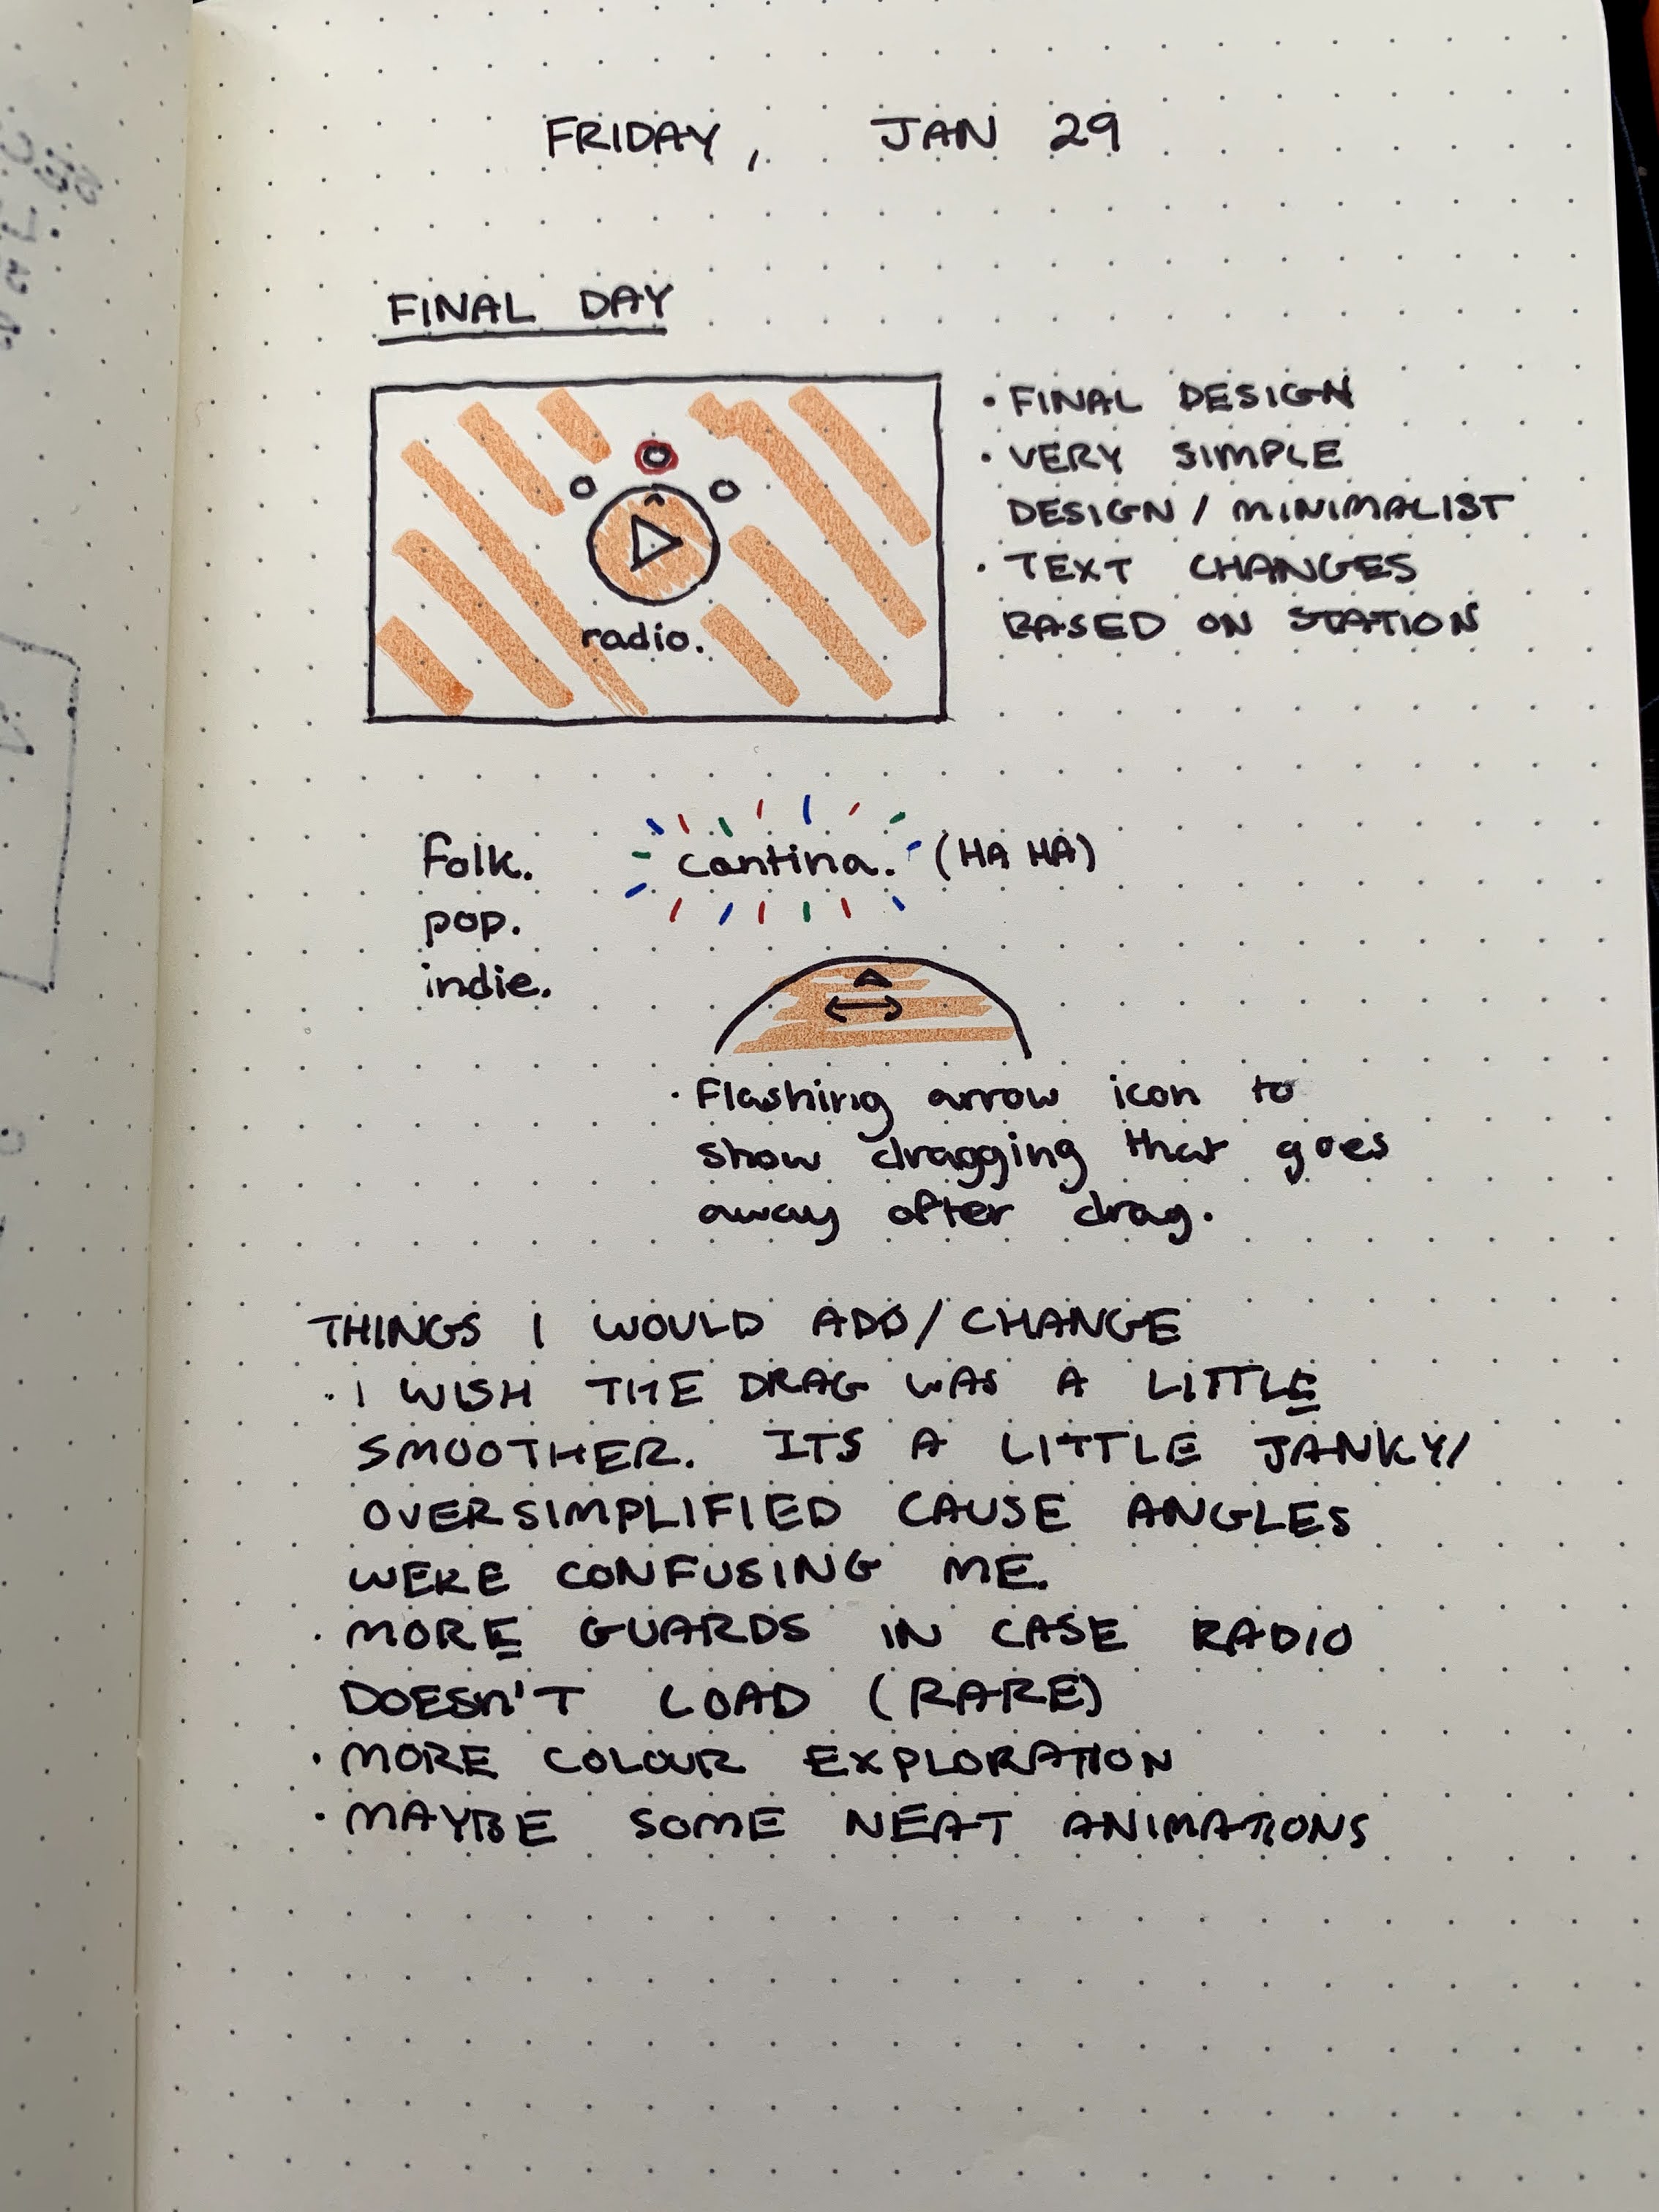 FRIDAY, JAN 29
FINAL DAY
radio.
• FINAL DESIGN
• VERY SIMPLE
DESIGN / MINIMALIST
• TEXT CHANGES
BASED ON STATION
folk.
pop.
indie.
cantina. (HA HA)
• Flashing arrow icon to
show dragging that goes
away after drag.
THINGS I WOULD ADD/CHANGE
• I WISH THE DRAG WAS A LITTLE
SMOOTHER. ITS A LITTLE JANKY/
OVERSIMPLIFIED CAUSE ANGLES
WERE CONFUSING ME.
• MORE GUARDS IN CASE RADIO
DOESN'T LOAD (RARE)
• MORE COLOUR EXPLORATION
• MAYBE SOME NEAT ANIMATIONS